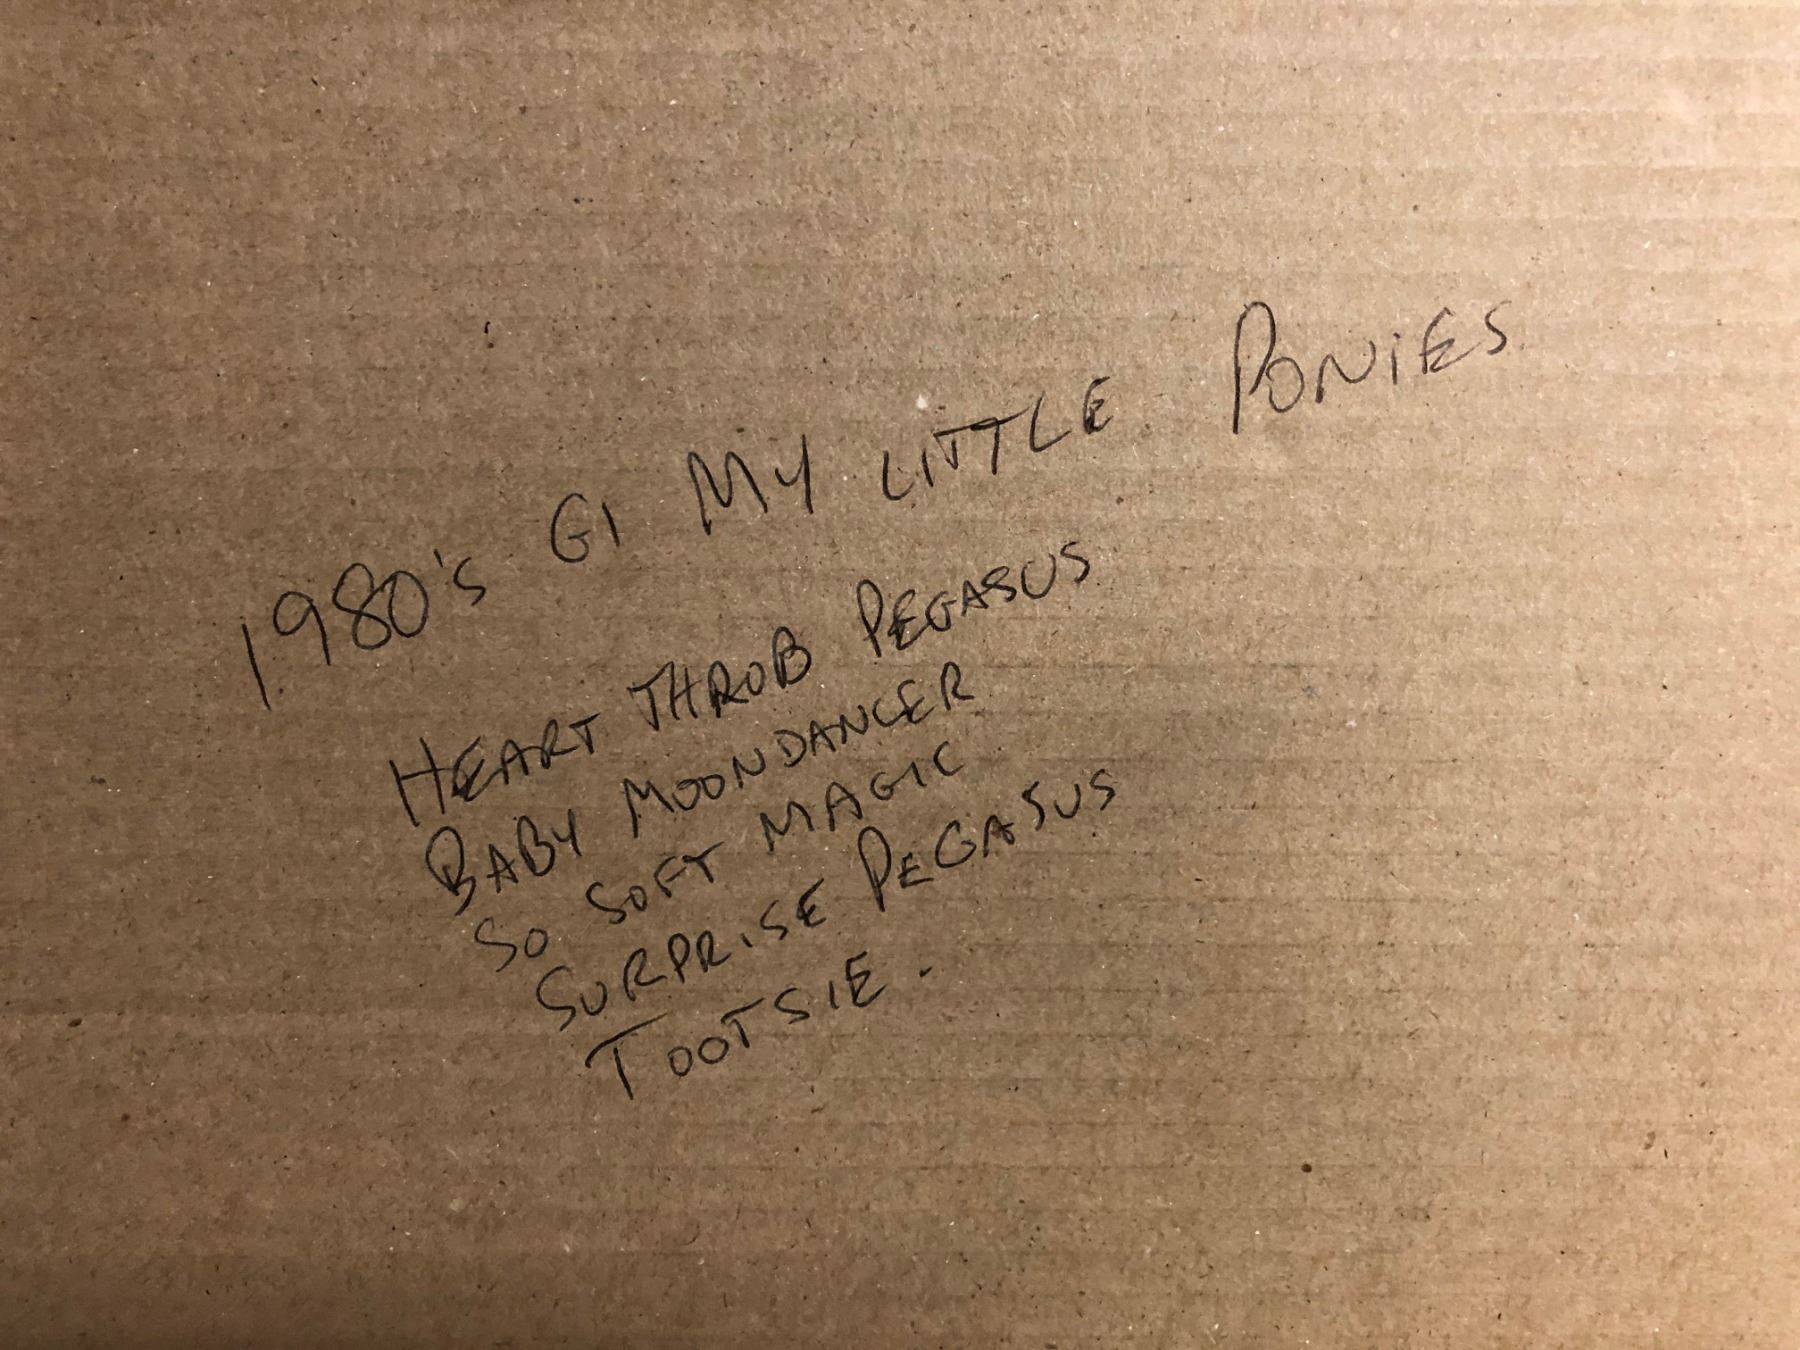 1980's G1 MY LITTLE PONIES
HEART THROB PEGASUS
BABY MOONDANCER
SO SOFT MAGIC
SURPRISE PEGASUS
TOOTSIE.